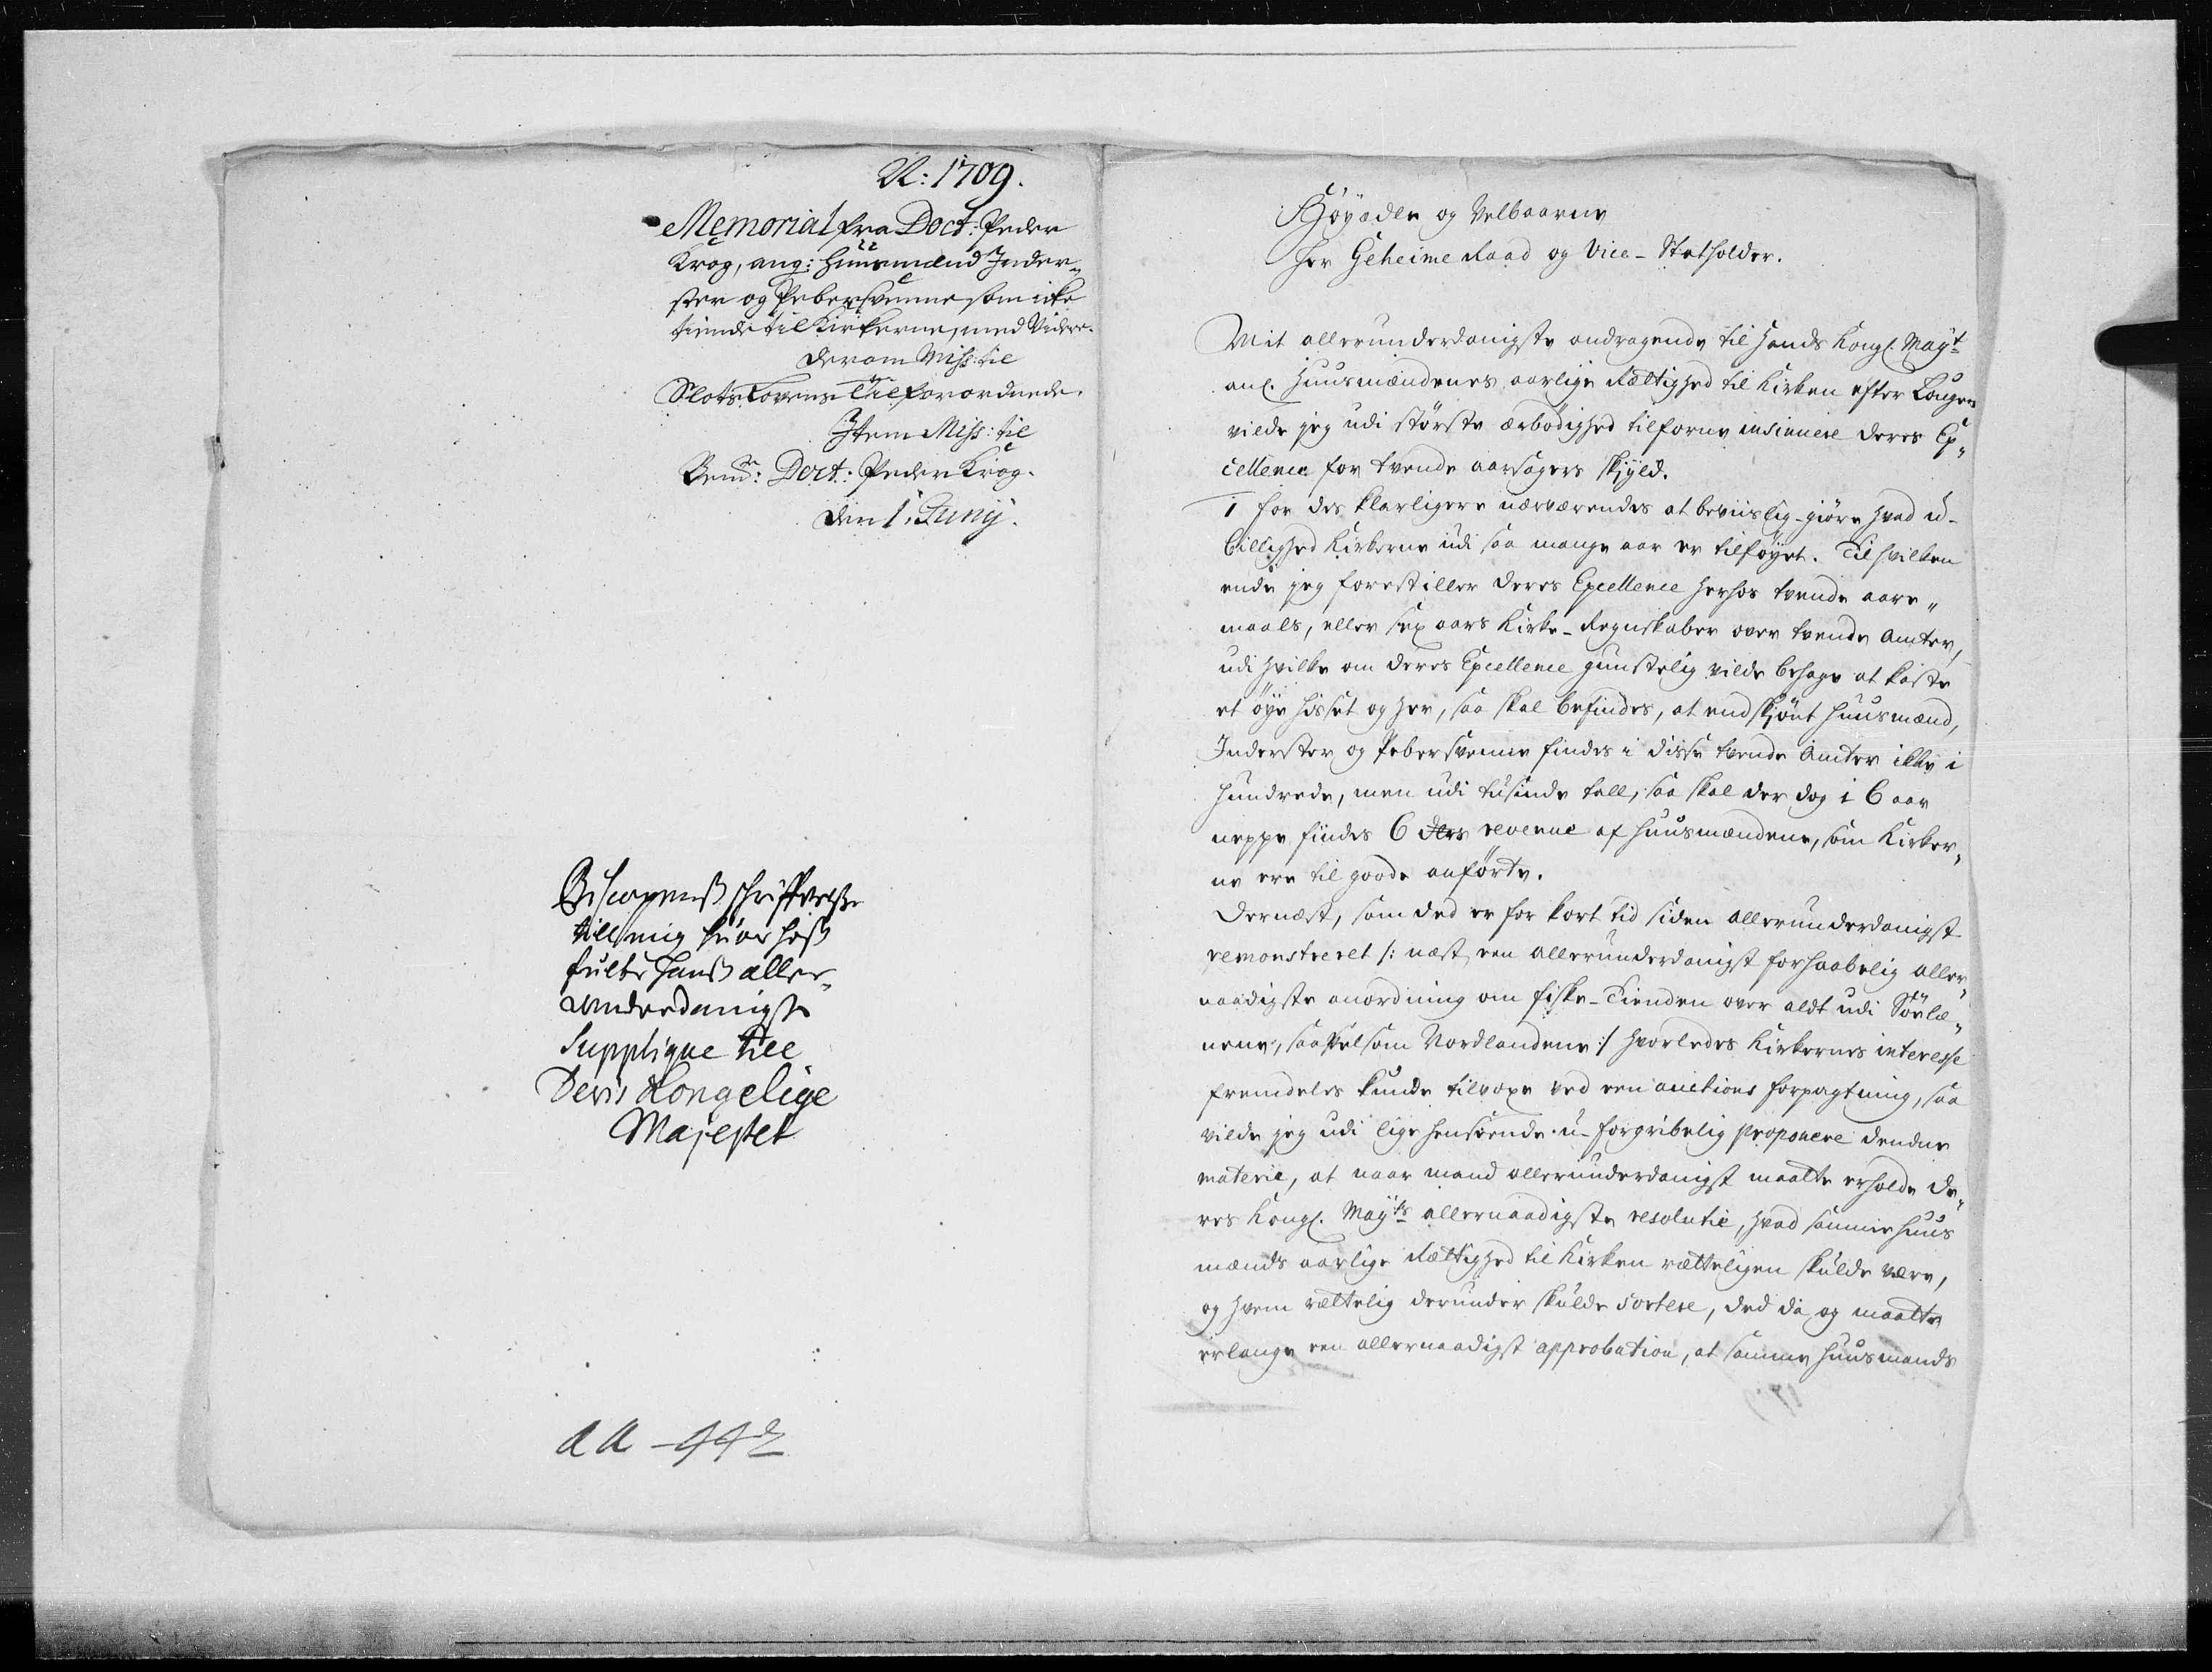 A: 1709.
Memorial fra Doct: Peder
Krog, ang: Huusmænd Inder-
ster og Pebersvenne som icke
tiende til Kirkerne, med Videre.
Derom Miss: til
SlotsLovens Tilforordnede.
Item Miss: til
Bem.te Doct: Peder Krog.
den 1. Junij.
Biscopens skrifvelse
till mig huor hoß
fulte hans aller-
underdanigste
Supplique till
Deris Kongelige
Majestet
AA - 442
Høyædle og Velbaarne
Her Geheime Raad og Vice-Statholder.
Mit allerunderdanigste andragende til Hands Kongl. Mayt
anl. Huusmændenes aarlige Rættighed til Kirken efter Lougen
vilde jeg udi største ærbødighed tilforne insinuere deres Ex-
cellence for tvende aarsagers skyld.
1 for des klarligere nærværendes at beviislig-giøre hvad u-
billighed Kirkerne udi saa mange aar er tilføyet. Til hvilken
ende jeg forestiller deres Excellence herhos tvende aare-
maals, eller sex aars Kirke-Regnskaber over tvende Amter,
udi hvilke om deres Excellence gunstelig vilde behage at kaste
et øye hisset og her, saa skal befindes, at endskjønt Huusmænd,
Inderster og Pebersvenne findes i disse tvende Amter ikke i
hundrede, men udi tusinde tall, saa skal der dog i 6 aar
neppe findes 6 dlrs revenue af Huusmændene, som Kirker-
ne ere til goode anførte.
Dernæst, som ded er for kort tid siden allerunderdanigst
remonstreret /: næst een allerunderdanigst forhaabelig aller-
naadigste anordning om fiske-Tienden over aldt udi Sørlæ-
nene, saavelsom Nordlandene :/ hvorledes Kirkernes interesse
fremdeles kunde tilvoxe ved een auctions forpagtning, saa
vilde jeg udi lige henseende u-forgribelig proponere dendne
materie, at naar mand allerunderdanigst maatte erholde de-
res Kongl. Mayts allernaadigste resolutie, hvad samme huus
mænds aarlige Rættighed til Kirken rætteligen skulde være,
og hvem rættelig derunder skulde sortere, ded da og maatte
erlange een allernaadigst approbation, at samme huusmænds